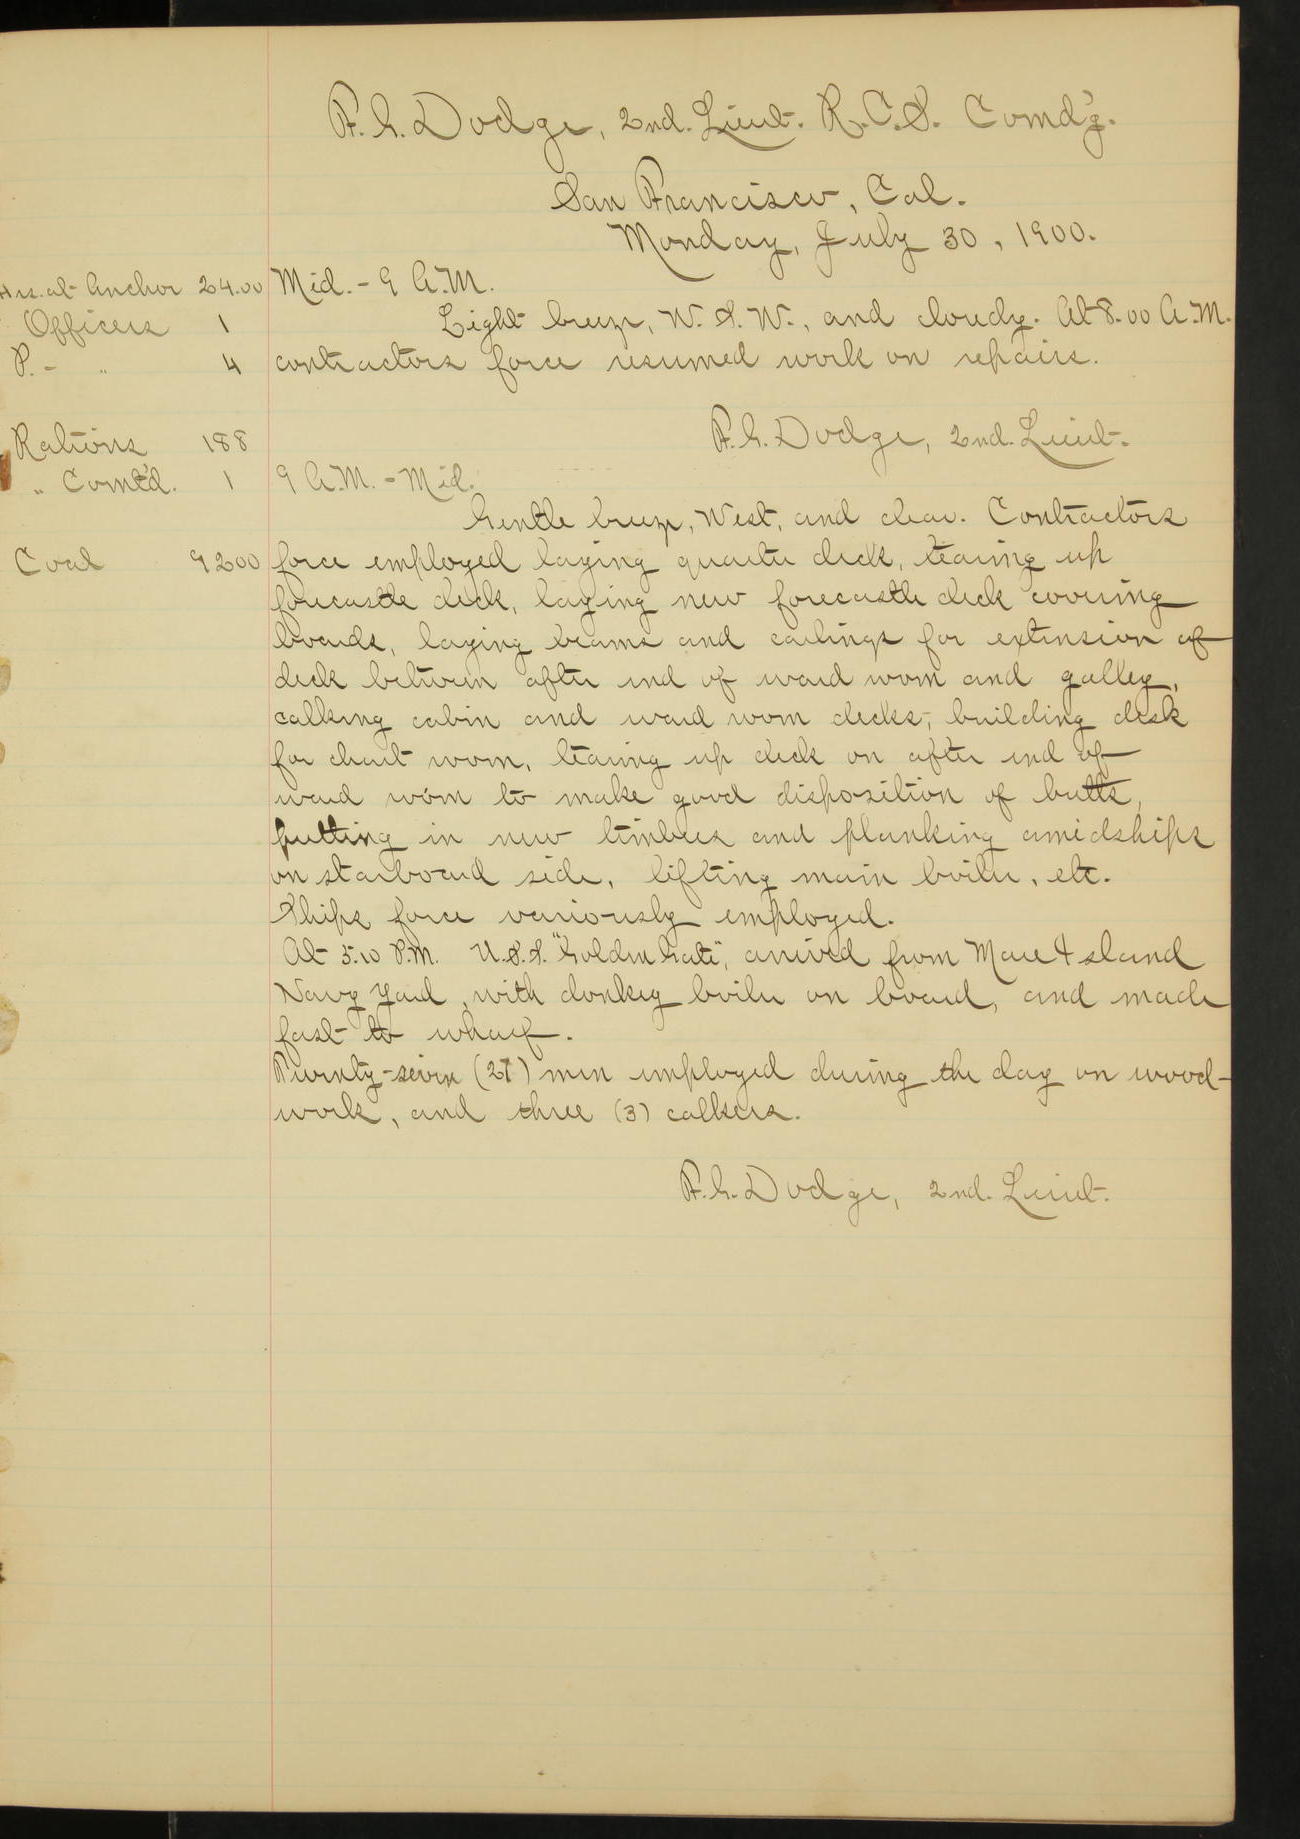 F. G. Dodge, 2nd. Lieut. R.C.S. Comd'g.
San Francisco, Cal.
Monday, July 30, 1900.
Hrs. at Anchor 24.00
Officers 1
P. - " 4
Rations 188
" Comt'd. 1
Coal 9200
Mid. - 9 A.M.
Light breeze, W. S. W., and cloudy. At 8.00 A.M.
contractors force resumed work on repairs.
F. G. Dodge, 2nd. Lieut.
9 A.M. - Mid.
Gentle breeze, West, and clear. Contractors
force employed laying quarter deck, tearing up
forecastle deck, laying new forecastle deck covering
boards, laying beams and carlings for extension of
deck between after end of ward room and galley,
calking cabin and ward room decks, building desk
for chart room, tearing up deck on after end of
ward room to make good disposition of butts,
putting in new timbers and planking amidships
on starboard side, lifting main boiler, etc.
Ships force variously employed.
At 5.10 P.M. U.S.S. "Golden Gate", arrived from Mare Island
Navy Yard, with donkey boiler on board, and made
fast to wharf.
Twenty-seven (27) men employed during the day on wood-
work, and three (3) calkers.
F. G. Dodge, 2nd. Lieut.